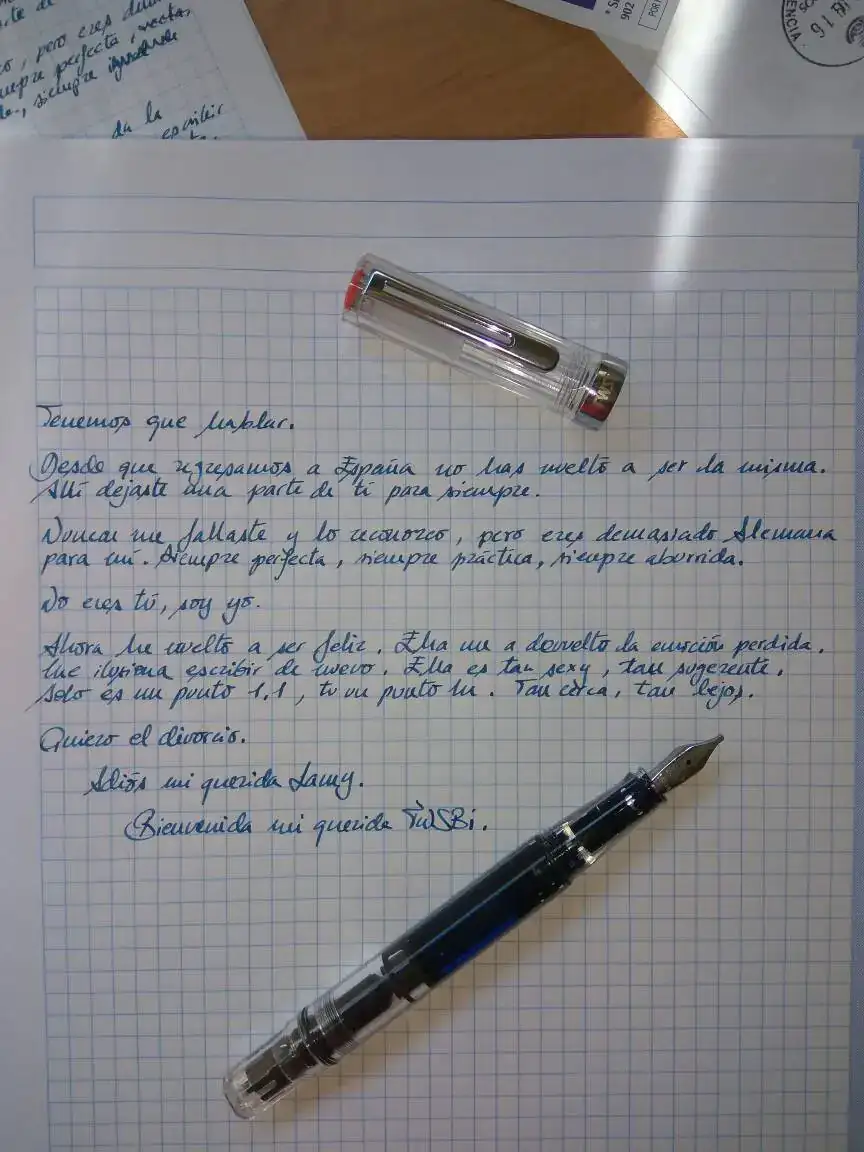 te de
, pero eres dema
siempre perfecta, recta,
siempre
da la
escribir
902
POR
ENCIA
16
Tenemos que hablar.
Desde que regresamos a España no has vuelto a ser la misma.
Allí dejaste una parte de ti para siempre.
Nunca me fallaste y lo reconozco, pero eres demasiado Alemana
para mí. Siempre perfecta, siempre práctica, siempre aburrida.
No eres tú, soy yo.
Ahora he vuelto a ser feliz. Ella me a devuelto la emoción perdida.
Me ilusiona escribir de nuevo. Ella es tan sexy, tan sugerente.
Solo es un punto 1.1, tu un punto M. Tan cerca, tan lejos.
Quiero el divorcio.
Adiós mi querida Lamy.
Bienvenida mi querida TWSBi.